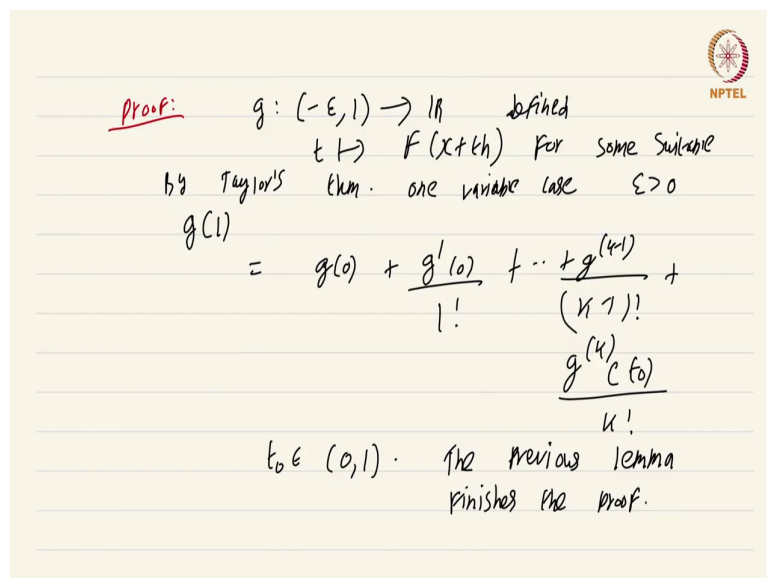 NPTEL
Proof: g : (-ε, 1) → ℝ defined
t ↦ F(x+th) for some suitable
By Taylor's thm. one variable case ε>0
g(1)
= g(0) + g'(0)/1! + ·· + g^(k-1)/(k-1)! +
g^(k)(t₀)/k!
t₀ ∈ (0,1). The previous lemma
finishes the proof.